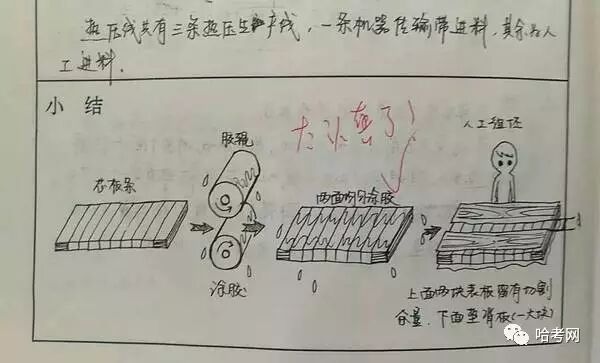 热压线共有三条热压生产线，一条机器传输带进料，其余为人
工进料.
小 结
胶辊
太认真了！
人工组坯
芯板条
两面均匀涂胶
涂胶
上面两块表板留有切割
余量，下面垫背板(一大块)
哈考网